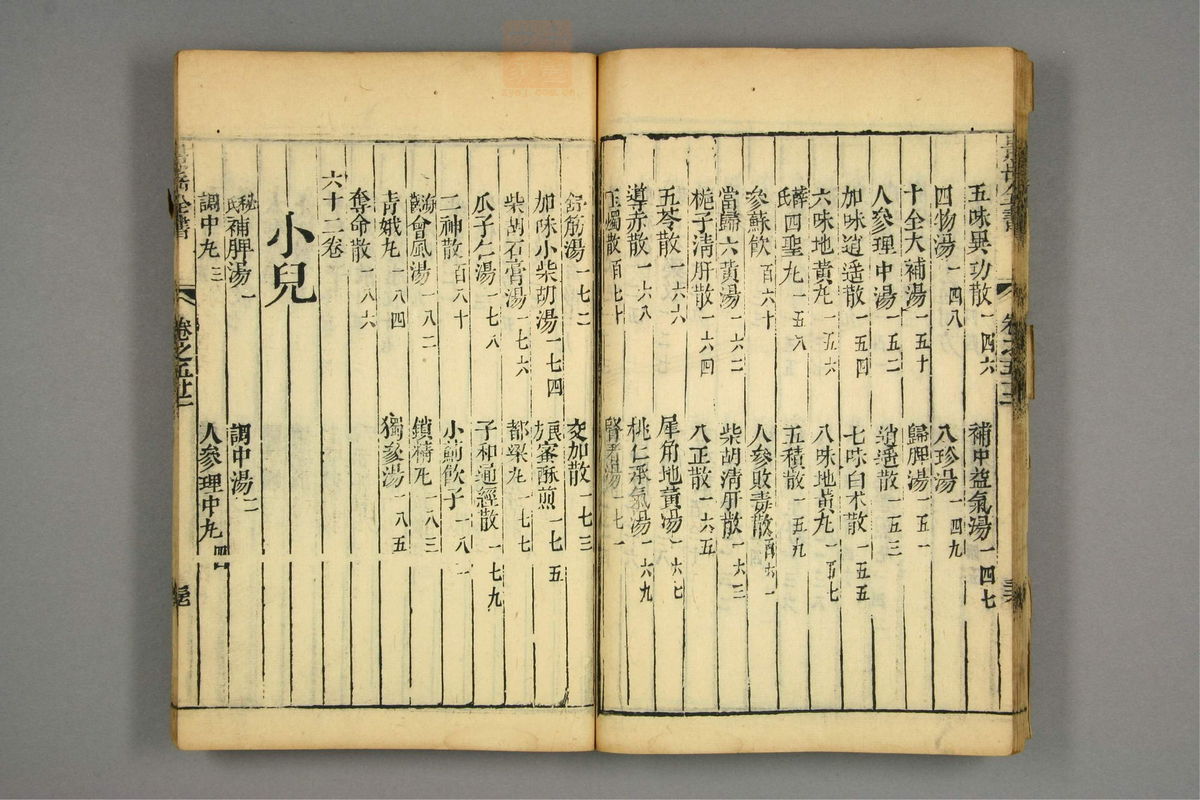 景岳全書
卷之五十三
五味異功散一四六 補中益氣湯一四七
四物湯一四八 八珍湯一四九
十全大補湯一五十 歸脾湯一五一
人參理中湯一五二 逍遥散一五三
加味逍遥散一五四 七味白术散一五五
六味地黃丸一五六 八味地黃丸一五七
薛氏四聖丸一五八 五積散一五九
參蘇飲百六十 人參敗毒散百六一
當歸六黃湯一六二 柴胡清肝散一六三
梔子清肝散一六四 八正散一六五
五苓散一六六 犀角地黃湯一六七
導赤散一六八 桃仁承氣湯一六九
玉燭散百七十 腎着湯一七一
舒筋湯一七二 交加散一七三
加味小柴胡湯一七四 蜜酥煎一七五
柴胡石膏湯一七六 都梁丸一七七
瓜子仁湯一七八 子和通經散一七九
二神散百八十 小薊飲子一八一
海藏會風湯一八二 鎖精丸一八三
青娥丸一八四 獨參湯一八五
奪命散一八六
六十二卷
小兒
秘氏補脾湯一 調中湯二
調中丸三 人參理中丸四
景岳全書
卷之五十三